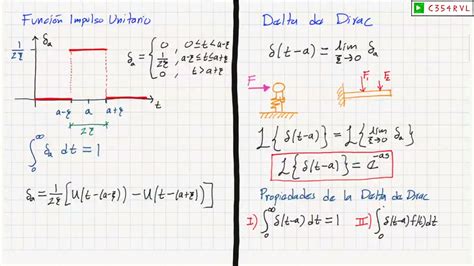 Función Impulso Unitario
1/2ξ
δa
a-ξ a a+ξ t
2ξ
δa = { 0 , 0≤t<a-ξ
1/2ξ , a-ξ≤t≤a+ξ
0 , t>a+ξ
∫₀^∞ δa dt = 1
δa = 1/2ξ [U(t-(a-ξ)) - U(t-(a+ξ))]
C354RVL
Delta de Dirac
δ(t-a) = lim ξ→0 δa
F F₁ F₂
L{δ(t-a)} = L{lim ξ→0 δa}
L{δ(t-a)} = e^-as
Propiedades de la Delta de Dirac
I) ∫₀^∞ δ(t-a) dt = 1 II) ∫₀ δ(t-a) f(t) dt